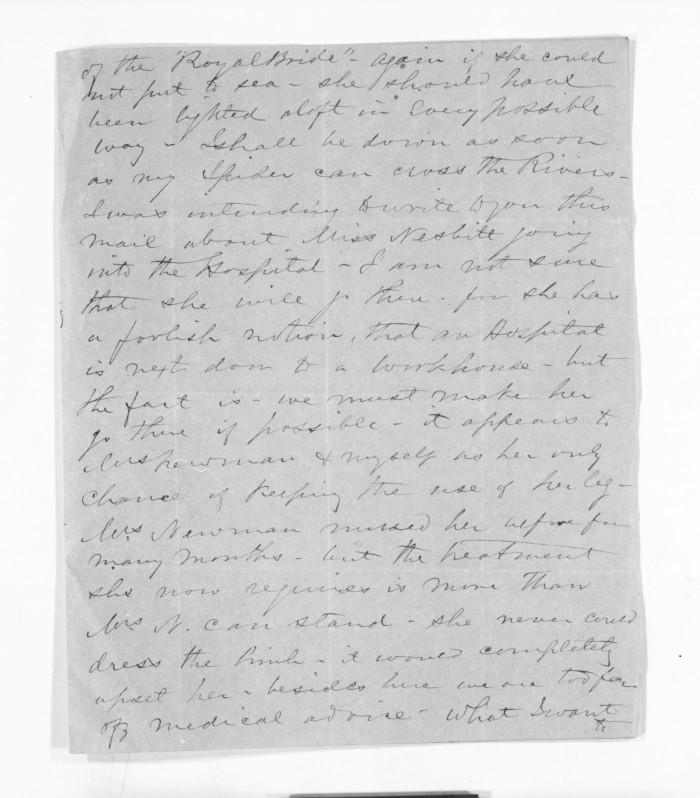 of the "Royal Bride" - again if she could
not put to sea - she should have
been lighted aloft in every possible
way - I shall be down as soon
as my Spider can cross the Rivers -
I was intending to write to you this
mail about Miss Nesbitt going
into the Hospital - I am not sure
that she will go there - for she has
a foolish notion, that an Hospital
is next door to a workhouse - but
the fact is - we must make her
go there if possible - it appears to
Mrs Newman & myself as her only
chance of keeping the use of her leg -
Mrs Newman nursed her before for
many months - but the treatment
she now requires is more than
Mrs N. can stand - she never could
dress the limb - it would completely
upset her - besides here we are too far
off medical advice - What I want
to